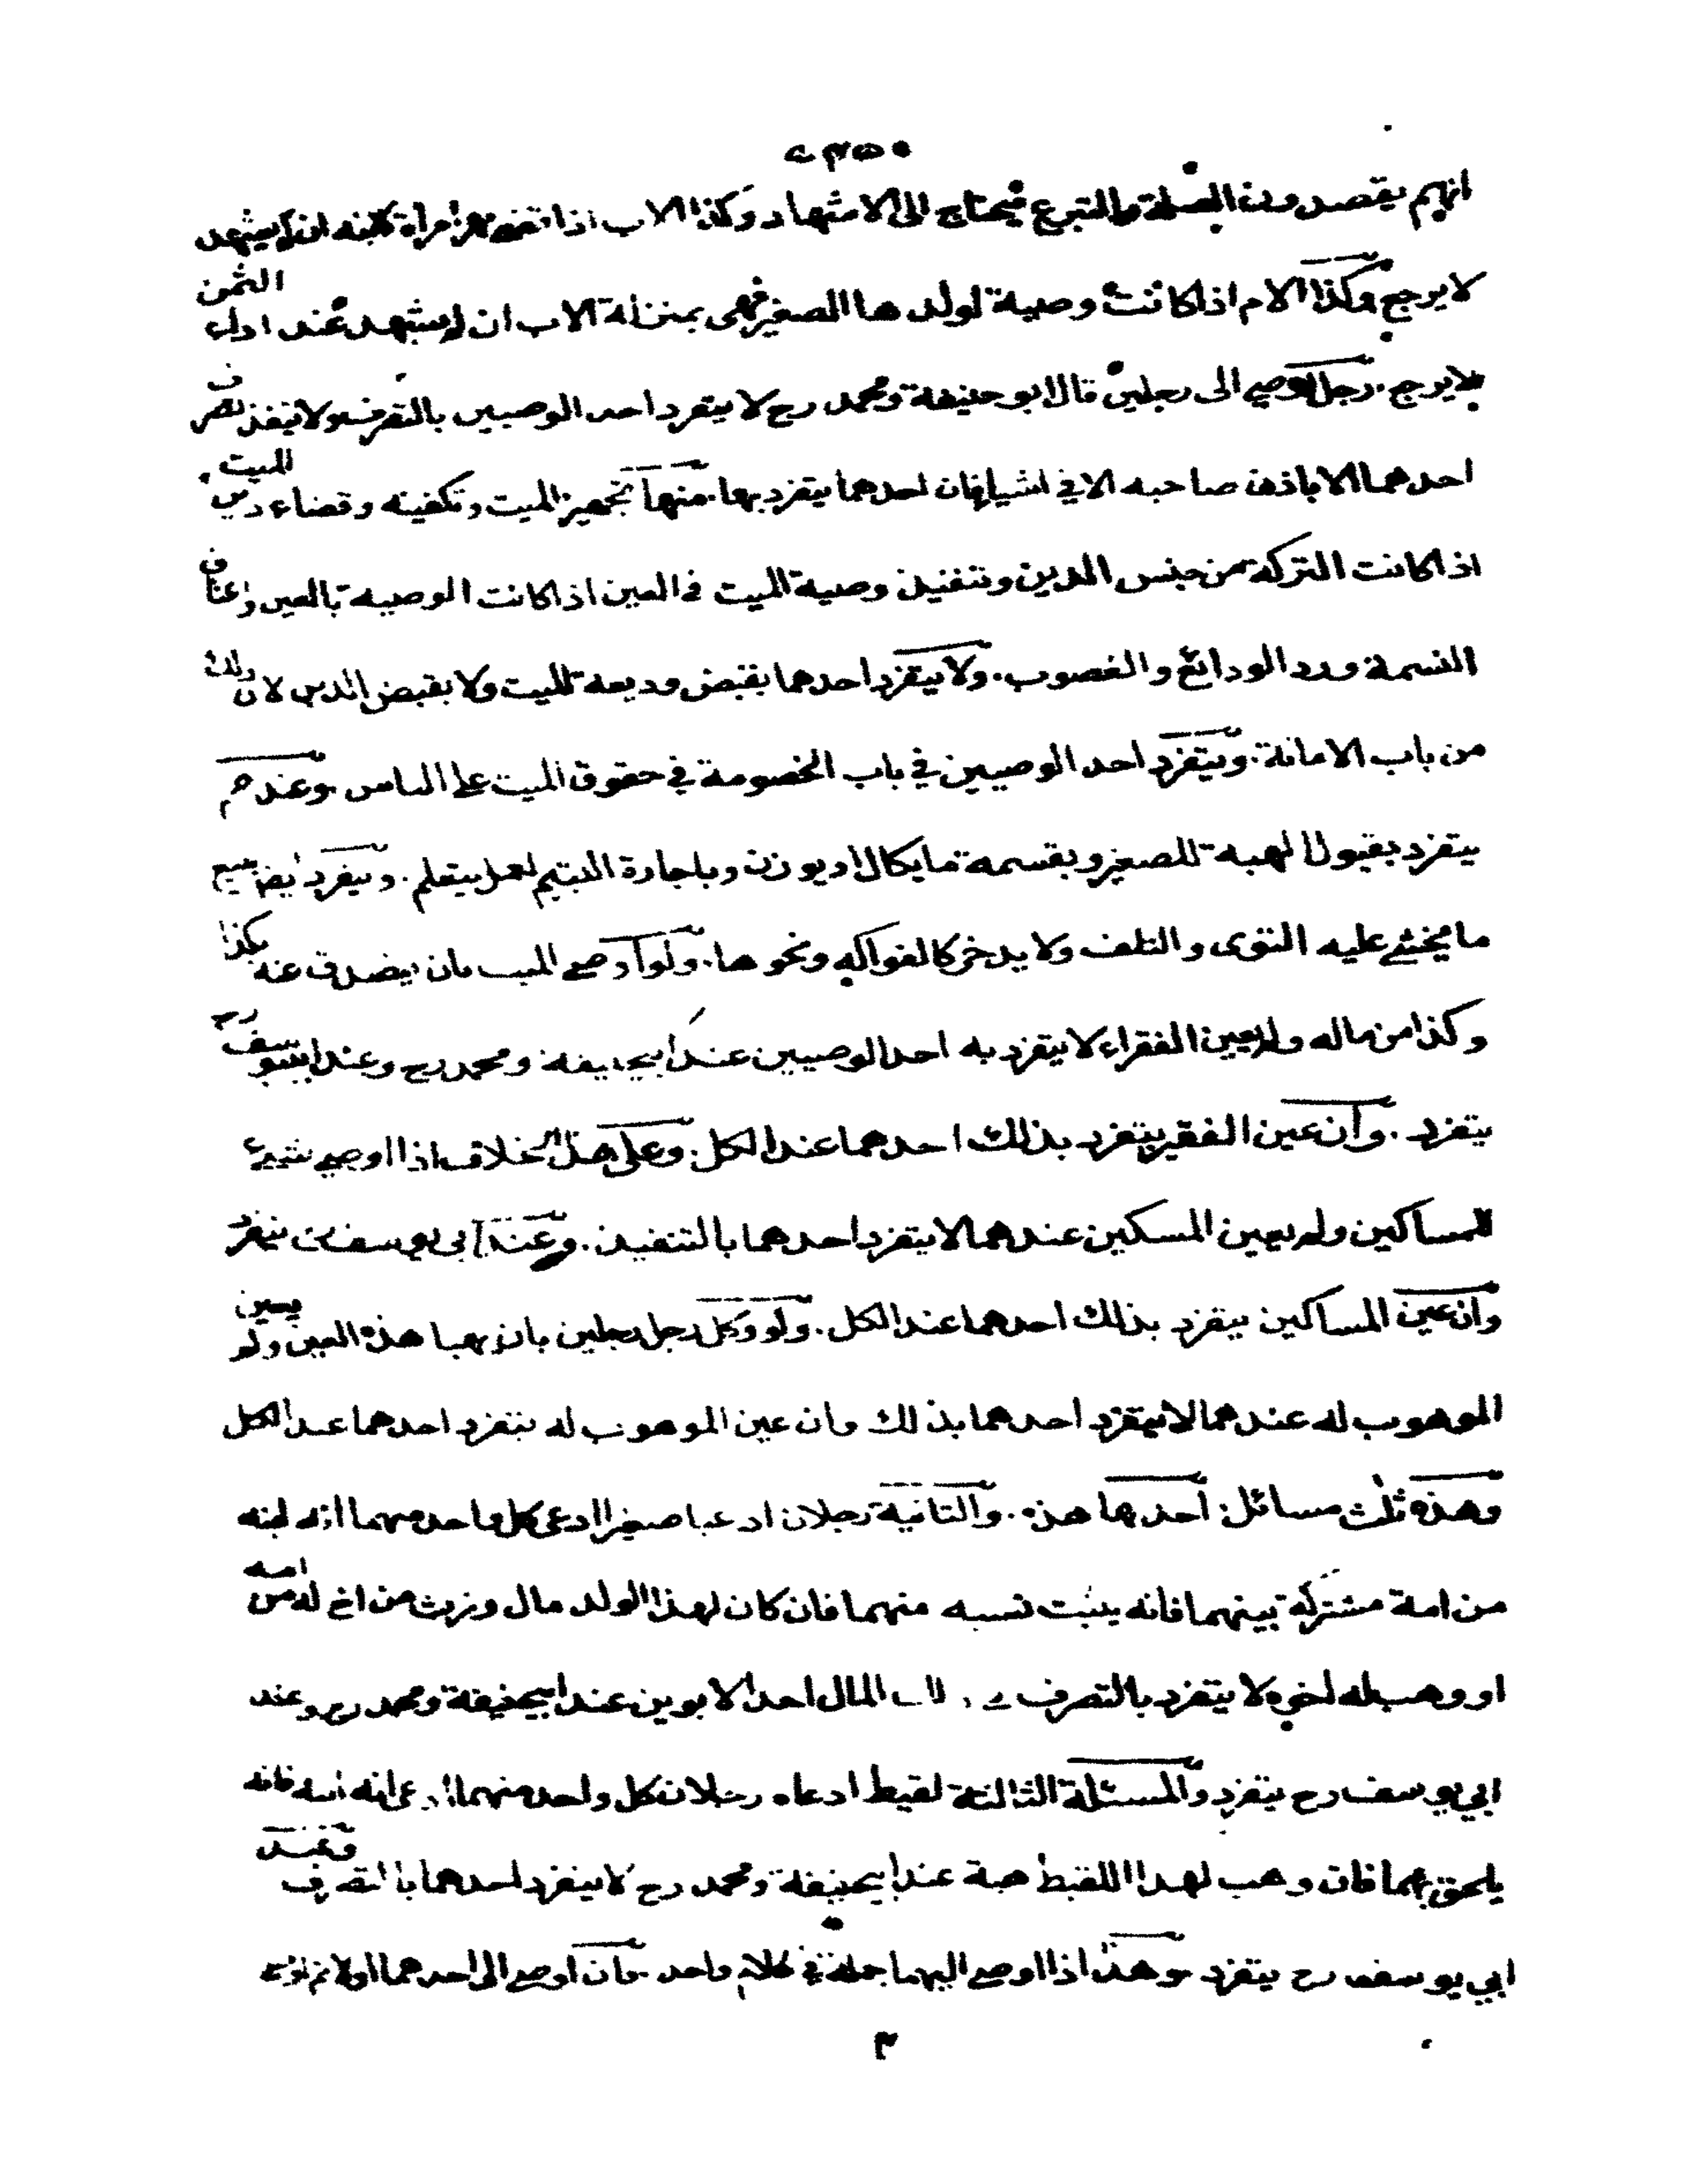 انهم يقصدون الصلة والتبرع فيحتاج الى الاشهاد وكذا الاب اذا قضى مهر امرأة ابنه ان لم يشهد
لا يرجع وكذا الام اذا كانت وصية لولدها الصغير فهى بمنزلة الاب ان لم يشهد عند اداء الثمن
لا يرجع . رجل اوصى الى رجلين قال ابو حنيفة ومحمد رح لا يتفرد احد الوصيين بالتصرف ولا ينفذ تصرف
احدهما الا باذن صاحبه الا في اشياء فان احدهما يتفرد بها . منها تجهيز الميت وتكفينه وقضاء دين الميت
اذا كانت التركة من جنس الدين وتنفيذ وصية الميت فى العين اذا كانت الوصية بالعين واعتاق
النسمة ورد الودائع والغصوب . ولا يتفرد احدهما بقبض وديعة الميت ولا بقبض الدين لان ذلك
من باب الامانة . ويتفرد احد الوصيين في باب الخصومة في حقوق الميت على الناس وعندهم
يتفرد بقبول الهبة للصغير وبقسمة ما يكال او يوزن وباجارة اليتيم لعمل يتعلم . ويتفرد ببيع
ما يخشى عليه التوى والتلف ولا يدخر كالفواكه ونحوها . ولو اوصى الميت بان يتصدق عنه بكذا
وكذا من ماله ولم يعين الفقراء لا يتفرد به احد الوصيين عند ابيحنيفة ومحمد رح وعند ابي يوسف رح
يتفرد . وان عين الفقير يتفرد بذلك احدهما عند الكل . وعلى هذا الخلاف اذا اوصى بشيء
للمساكين ولم يعين المسكين عندهما لا يتفرد احدهما بالتنفيذ . وعند ابى يوسف رح يتفرد
وان عين المساكين يتفرد بذلك احدهما عند الكل . ولو وكل رجل رجلين بان يهبا هذه العين ولم يعين
الموهوب له عندهما لا يتفرد احدهما بذلك وان عين الموهوب له يتفرد احدهما عند الكل
وهذه ثلث مسائل احدىها هذه . والثانية رجلان ادعيا صغيرا ادعى كل واحد منهما انه ابنه
من امة مشتركة بينهما فانه يثبت نسبه منهما فان كان لهذا الولد مال ورث من اخ له من امه
او وهب له اخوه لا يتفرد بالتصرف في ذلك المال احد الابوين عند ابيحنيفة ومحمد رح وعند
ابي يوسف رح يتفرد والمسئلة الثالثة لقيط ادعاه رجلان كل واحد منهما ادعى انه ابنه فانه
يلحق بهما فان وهب لهذا اللقيط هبة عند ابيحنيفة ومحمد رح لا يتفرد احدهما بالتصرف وعند
ابي يوسف رح يتفرد وهذا اذا اوصى اليهما جملة في كلام واحد . وان اوصى الى احدهما اولا ثم اوصى
٣